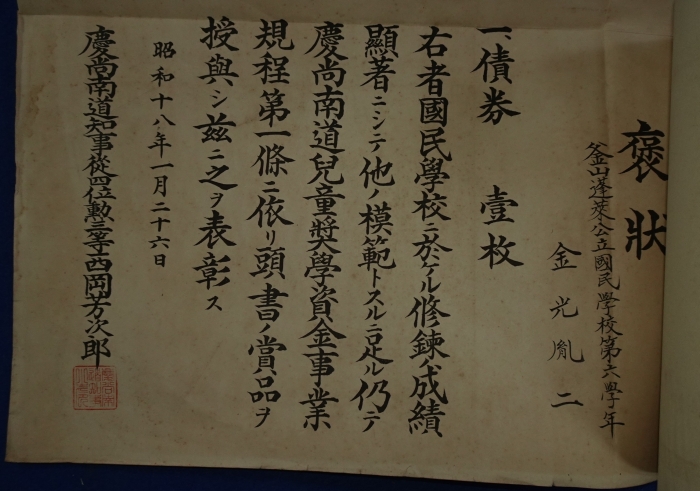 褒狀
釜山蓬萊公立國民學校第六學年
金光胤二
一、債券　壹枚
右者國民學校ニ於ケル修鍊ノ成績
顯著ニシテ他ノ模範トスルニ足ル仍テ
慶尚南道兒童奬學資金事業
規程第一條ニ依リ頭書ノ賞品ヲ
授與シ茲ニ之ヲ表彰ス
昭和十八年一月二十六日
慶尚南道知事從四位勲三等西岡芳次郎